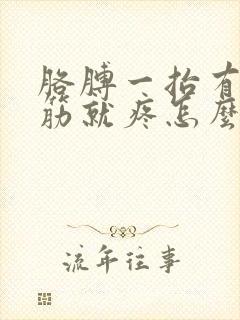 胳膊一抬有
筋就疼怎麼
流年往事